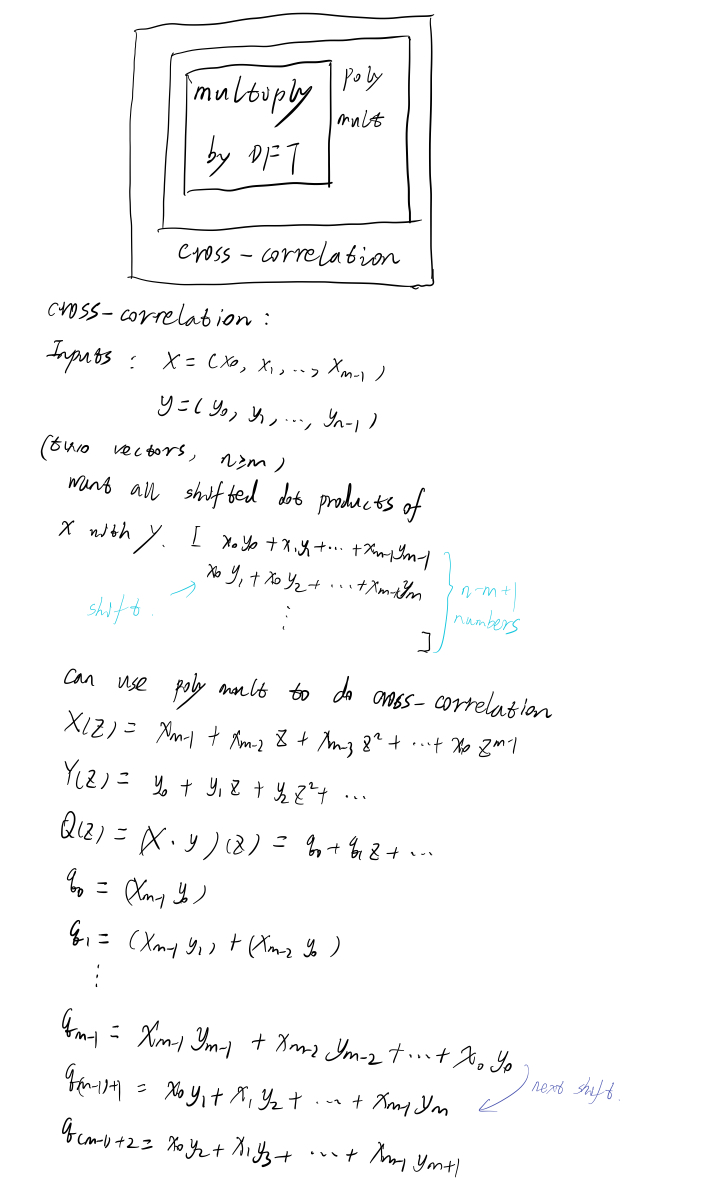 multuply
by DFT
poly
mult
cross-correlation
cross-correlation :
Inputs : x = (x₀, x₁, ..., xₘ₋₁)
y = (y₀, y₁, ..., yₙ₋₁)
(two vectors, n≥m)
want all shifted dot products of
x with y. [ x₀y₀ + x₁y₁ + ... + xₘ₋₁yₘ₋₁
x₀y₁ + x₀y₂ + ... + xₘ₋₁yₘ
shift.
⋮
]
n-m+1
numbers
can use poly mult to do cross-correlation
X(z) = xₘ₋₁ + xₘ₋₂ z + xₘ₋₃ z² + ... + x₀ zᵐ⁻¹
Y(z) = y₀ + y₁ z + y₂ z² + ...
Q(z) = (X · y)(z) = q₀ + q₁ z + ...
q₀ = (xₘ₋₁ y₀)
q₁ = (xₘ₋₁ y₁) + (xₘ₋₂ y₀)
⋮
qₘ₋₁ = xₘ₋₁ yₘ₋₁ + xₘ₋₂ yₘ₋₂ + ... + x₀ y₀
q₍ₘ₋₁₎₊₁ = x₀y₁ + x₁y₂ + ... + xₘ₋₁ yₘ
next shift.
q₍ₘ₋₁₎₊₂ = x₀y₂ + x₁y₃ + ... + xₘ₋₁ yₘ₊₁